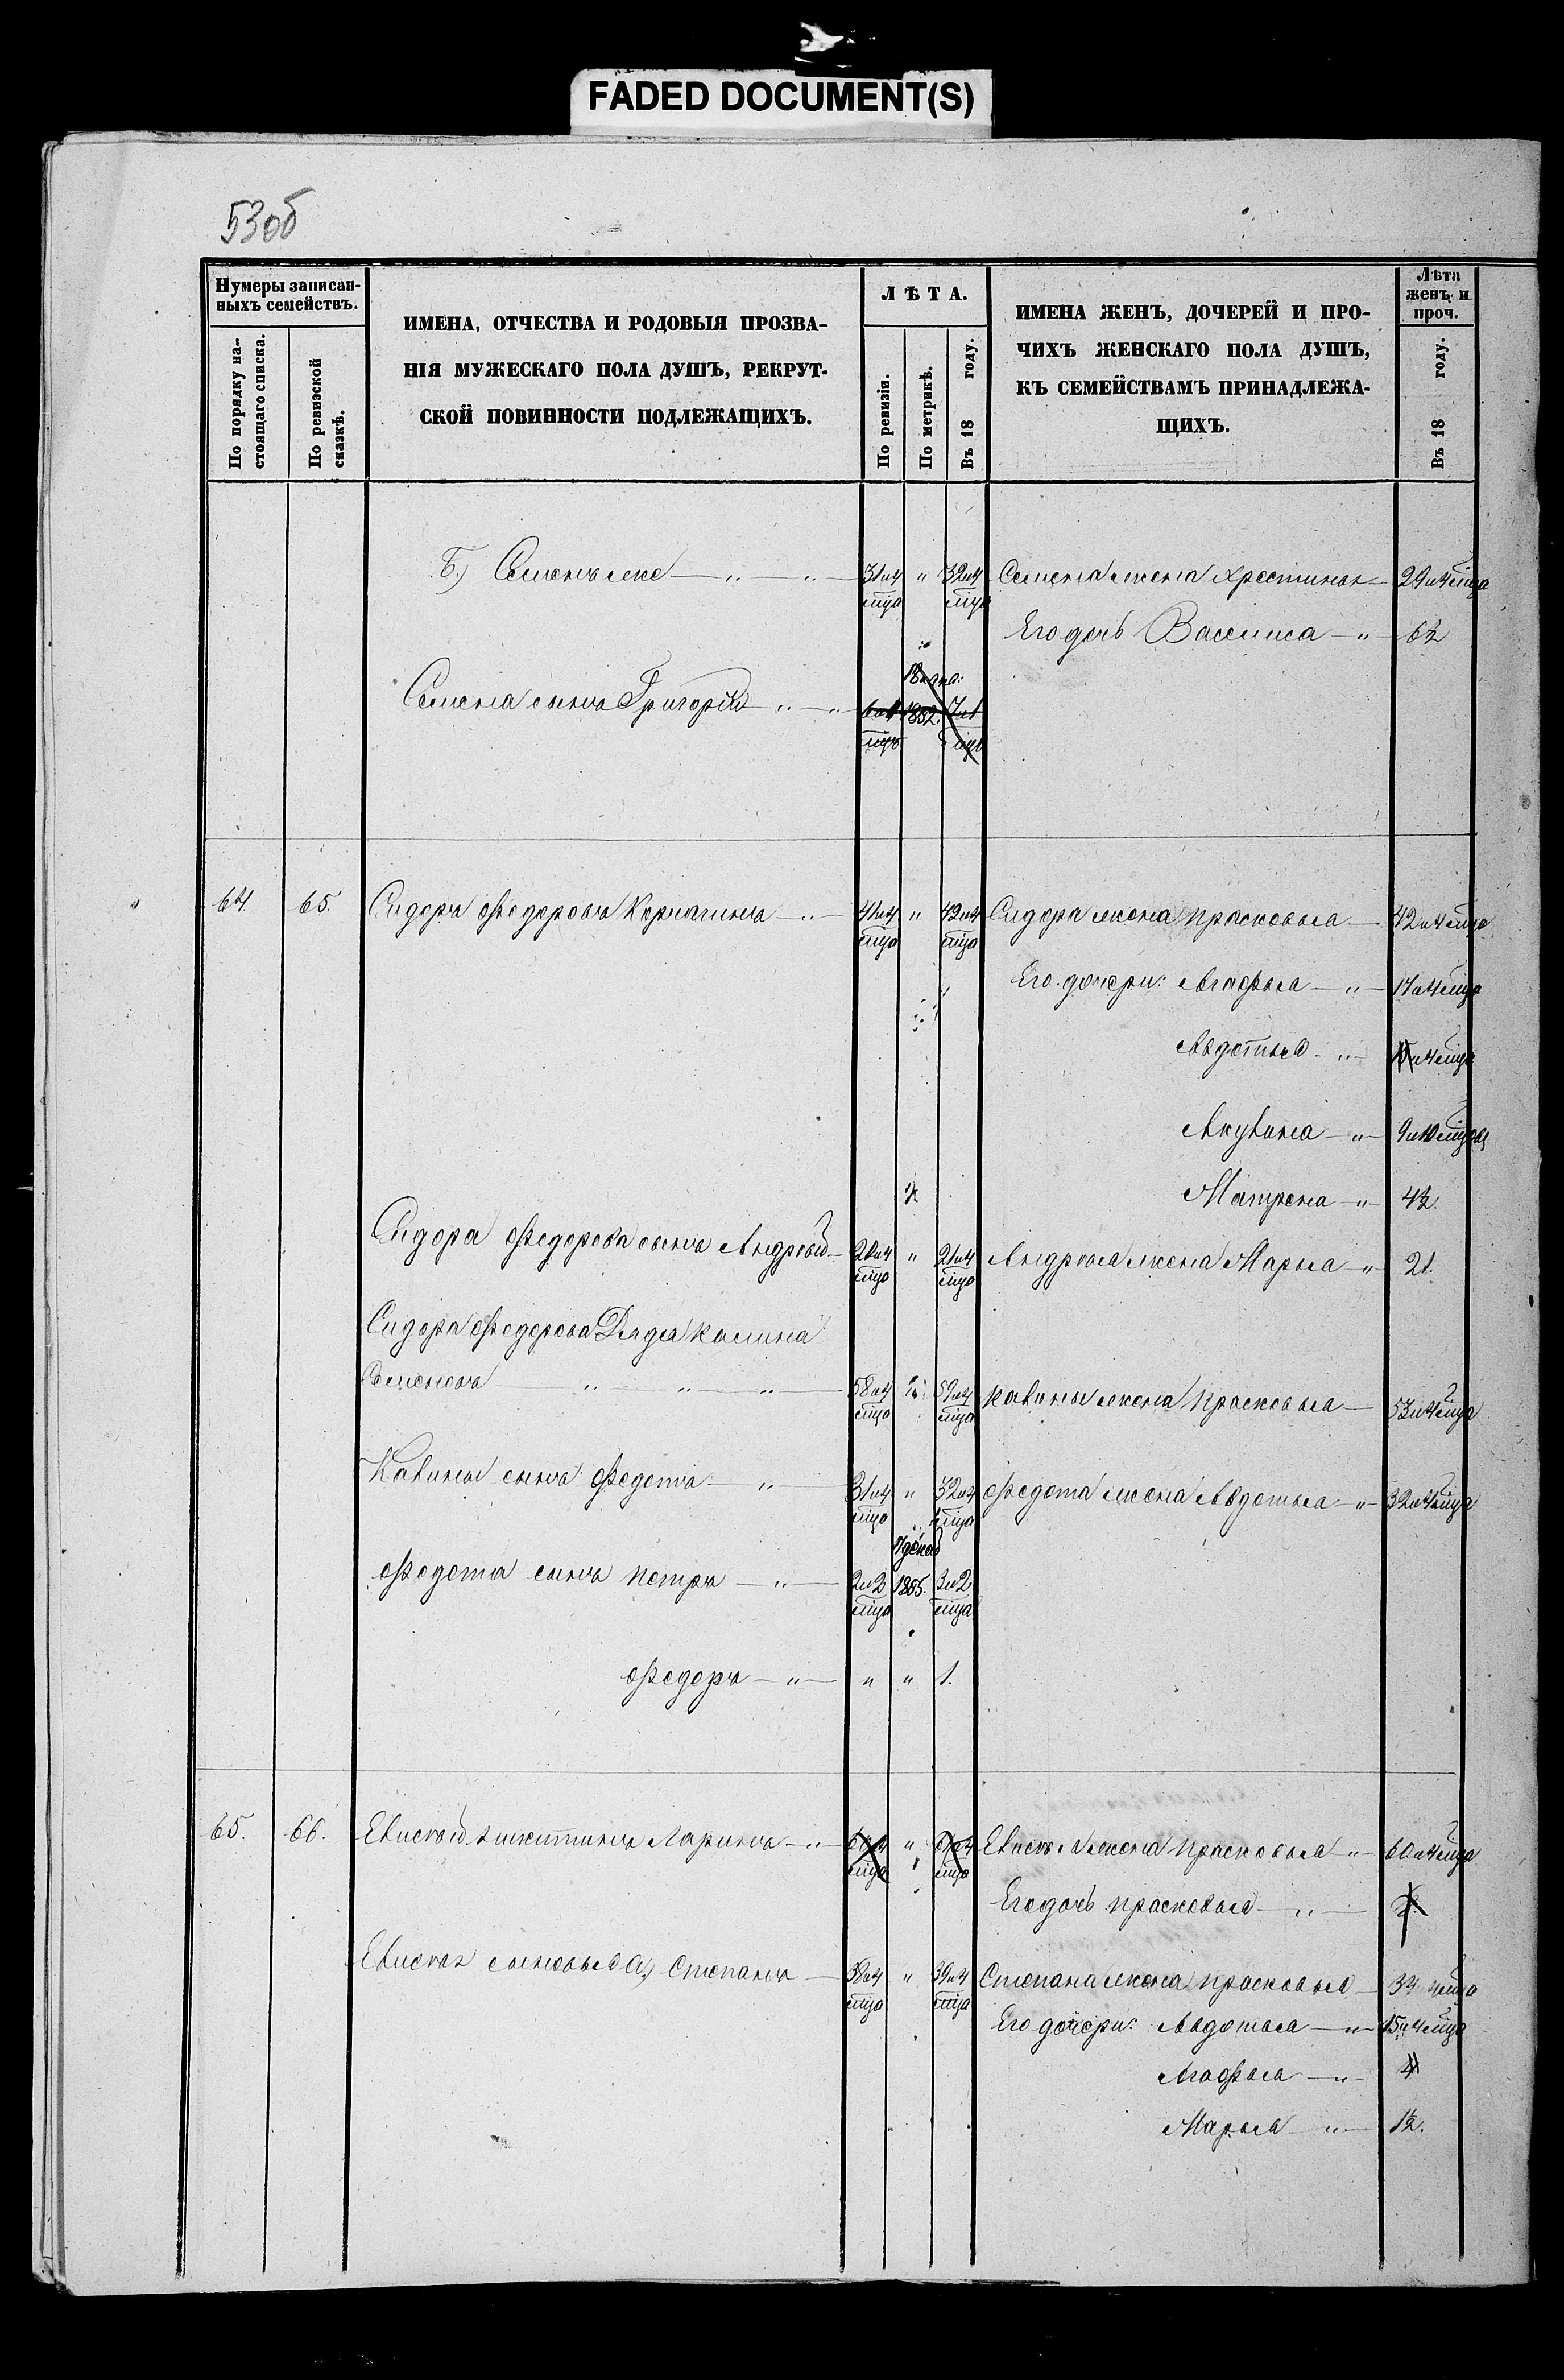 FADED DOCUMENT(S)
53об
Нумеры записан-
ныхъ семействъ.
По порядку на-
стоящаго списка.
По ревизской
сказкѣ.
ИМЕНА, ОТЧЕСТВА И РОДОВЫЯ ПРОЗВА-
НІЯ МУЖЕСКАГО ПОЛА ДУШЪ, РЕКРУТ-
СКОЙ ПОВИННОСТИ ПОДЛЕЖАЩИХЪ.
ЛѢТА.
По ревизіи.
По метрикѣ.
Въ 18 году.
ИМЕНА ЖЕНЪ, ДОЧЕРЕЙ И ПРО-
ЧИХЪ ЖЕНСКАГО ПОЛА ДУШЪ,
КЪ СЕМЕЙСТВАМЪ ПРИНАДЛЕЖА-
ЩИХЪ.
Лѣта
женъ и
проч.
Въ 18 году.
Б.) Семенъ — " — " — 31 и 4 мца " 32 и 4 мца Семена жена Хрестинья — 29 и 4 мца
Его дочь Василиса — " — 6½
Семена сынъ Григорій — " — " 1852. 7 и 1 мцъ
64. 65. Сидоръ Федоровъ Корчагинъ — " — 41 и 4 мца " 42 и 4 мца Сидора жена Прасковья — 42 и 4 мца
Его дочери: Агафья — " — 17 и 4 мца
Авдотья — " — и 4 мца
Акулина — " — 9 и 10 мцовъ
Матрена — " 4½.
Сидора Федорова сынъ Андрей — 20 и 4 мца " 21 и 4 мца Андрея жена Марья " 21.
Сидора Федорова Дядя Калина
Семеновъ — " — " — " — 58 и 4 мца " 59 и 4 мца Калины жена Прасковья — 53 и 4 мца
Калины сынъ Федотъ — " — 31 и 4 мца " 32 и 4 мца Федота жена Авдотья — " — 32 и 4 мца
Федота сынъ Петръ — " — 2 и 2 мца 1855. 3 и 2 мца
Федоръ — " — " " 1.
65. 66. Елисей Никитинъ Ларинъ — " — " Елисея жена Прасковья — " 60 и 4 мца
Его дочь Прасковья — " —
Елисея сыновья а) Степанъ — 38 и 4 мца " 39 и 4 мца Степана жена Прасковья — 34 мца
Его дочери: Авдотья — " — 15 и 4 мца
Агафья — " — 4
Марья — " — 1½.